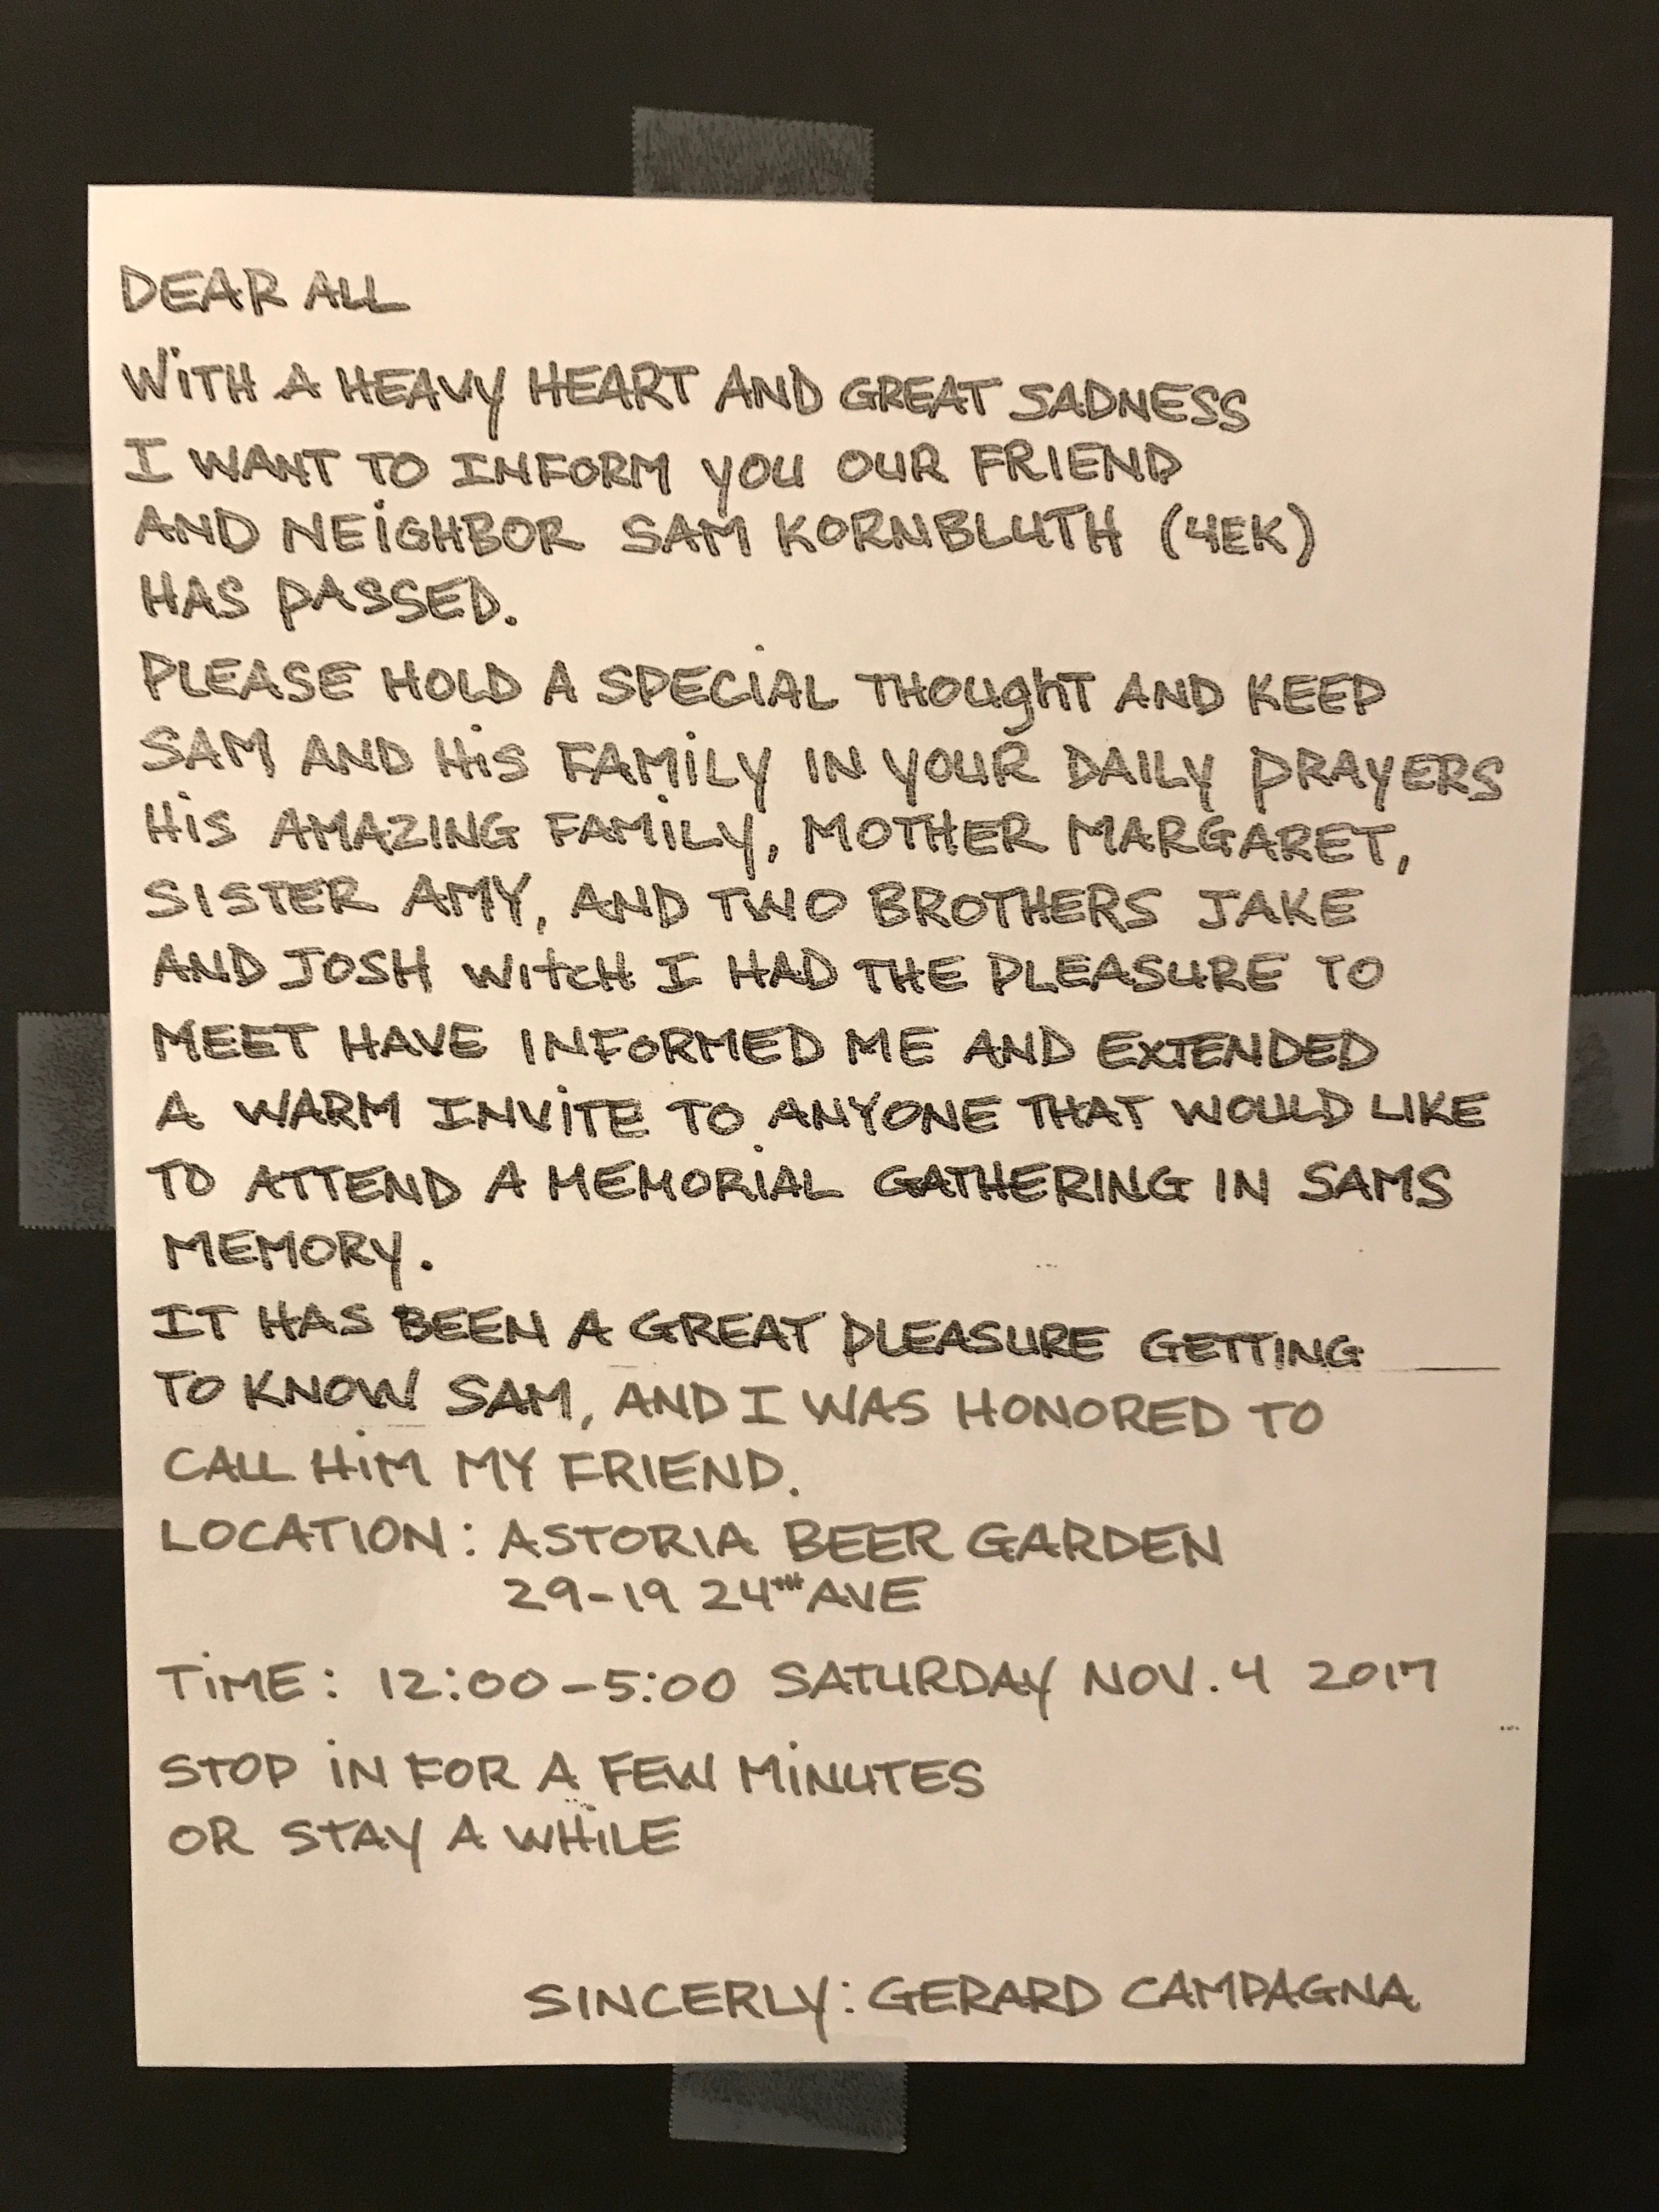 DEAR ALL
WITH A HEAVY HEART AND GREAT SADNESS
I WANT TO INFORM YOU OUR FRIEND
AND NEIGHBOR SAM KORNBLUTH (4EK)
HAS PASSED.
PLEASE HOLD A SPECIAL THOUGHT AND KEEP
SAM AND HIS FAMILY IN YOUR DAILY PRAYERS
HIS AMAZING FAMILY, MOTHER MARGARET,
SISTER AMY, AND TWO BROTHERS JAKE
AND JOSH WITCH I HAD THE PLEASURE TO
MEET HAVE INFORMED ME AND EXTENDED
A WARM INVITE TO ANYONE THAT WOULD LIKE
TO ATTEND A MEMORIAL GATHERING IN SAMS
MEMORY.
IT HAS BEEN A GREAT PLEASURE GETTING
TO KNOW SAM, AND I WAS HONORED TO
CALL HIM MY FRIEND.
LOCATION: ASTORIA BEER GARDEN
29-19 24TH AVE
TIME: 12:00-5:00 SATURDAY NOV. 4 2017
STOP IN FOR A FEW MINUTES
OR STAY A WHILE
SINCERLY: GERARD CAMPAGNA